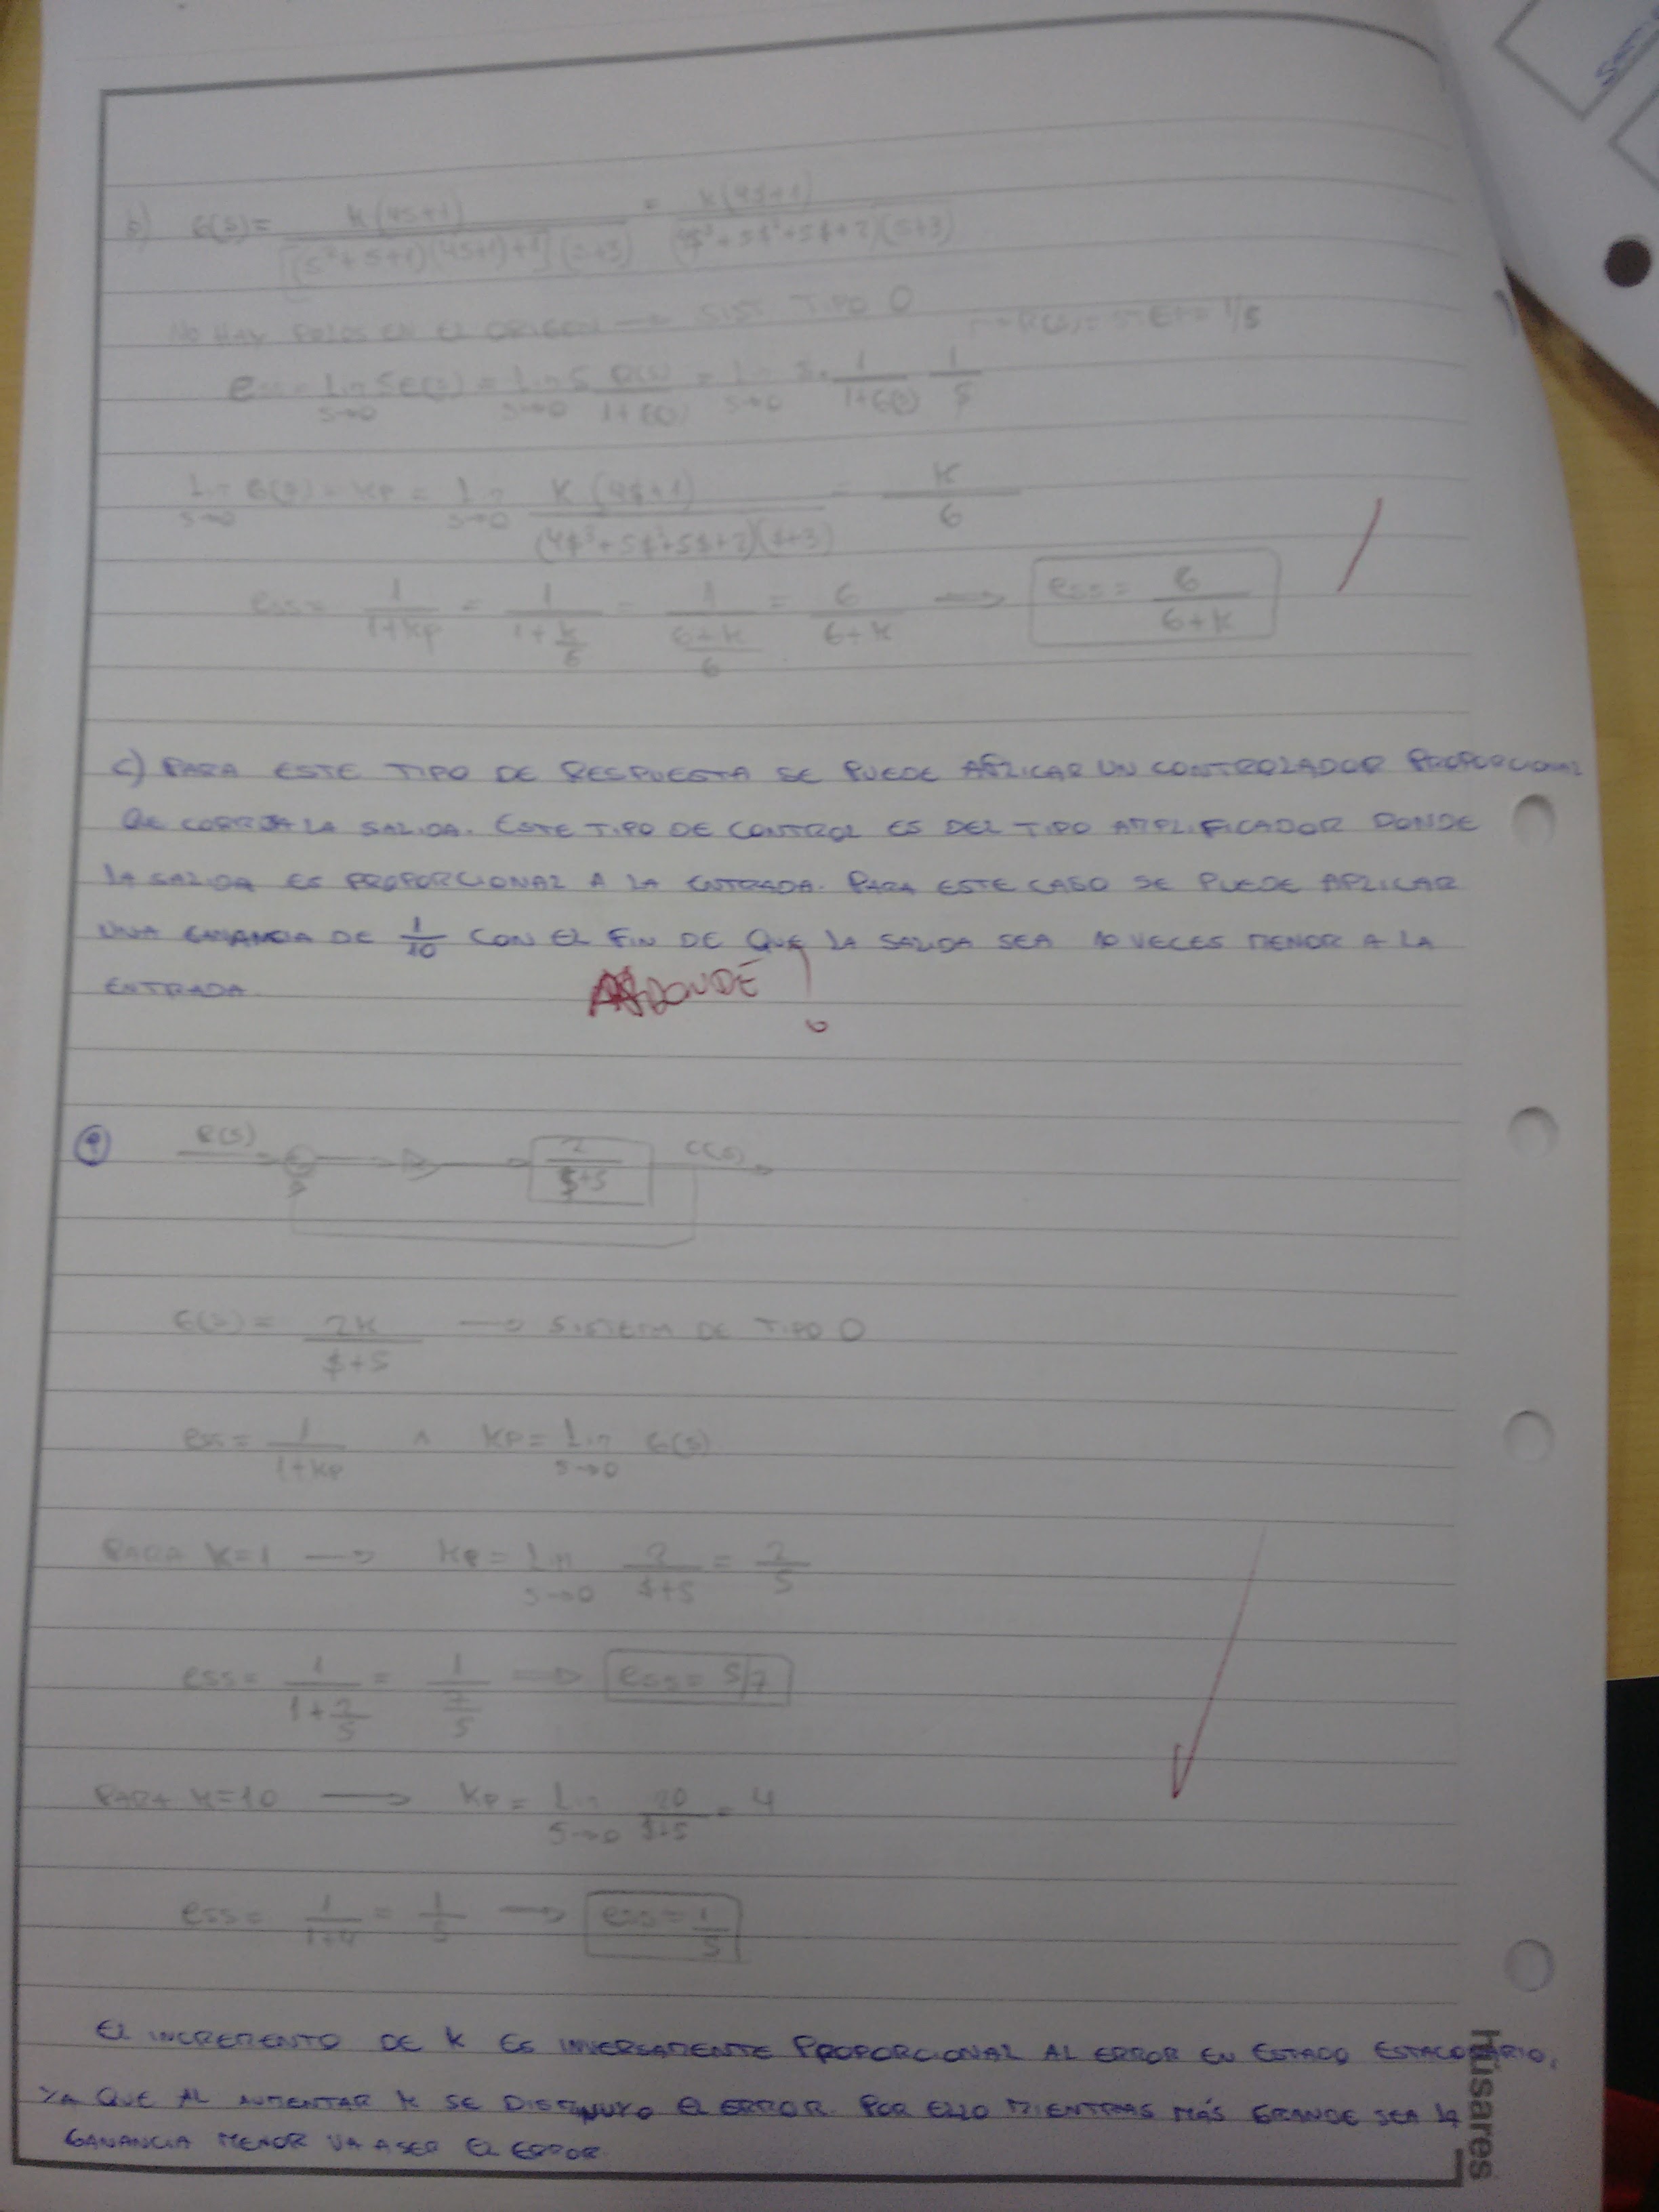 b) G(s) = K(4s+1) / [(s²+s+1)(4s+1)+1](s+3) = K(4s+1) / (4s³+5s²+5s+2)(s+3)
NO HAY POLOS EN EL ORIGEN → SIST TIPO 0
ess = Lim s→0 SE(s) = Lim s→0 S R(s) / 1+G(s) = Lim s→0 S. 1 / 1+G(s) 1/s
Lim s→0 G(s) = Kp = Lim s→0 K(4s+1) / (4s³+5s²+5s+2)(s+3) = K/6
ess = 1/1+Kp = 1/1+K/6 = 1/6+K/6 = 6/6+K → ess = 6/6+K
c) PARA ESTE TIPO DE RESPUESTA SE PUEDE APLICAR UN CONTROLADOR PROPORCIONAL
QUE CORRIJA LA SALIDA. ESTE TIPO DE CONTROL ES DEL TIPO AMPLIFICADOR DONDE
LA SALIDA ES PROPORCIONAL A LA ENTRADA. PARA ESTE CASO SE PUEDE APLICAR
UNA GANANCIA DE 1/10 CON EL FIN DE QUE LA SALIDA SEA 10 VECES MENOR A LA
ENTRADA.
DONDE
R(s) 2/s+5 C(s)
G(s) = 2K/s+5 → SISTEMA DE TIPO 0
ess = 1/1+Kp ∧ Kp = Lim s→0 G(s)
PARA K=1 → Kp = Lim s→0 2/s+5 = 2/5
ess = 1/1+2/5 = 1/7/5 → ess = 5/7
PARA K=10 → Kp = Lim s→0 20/s+5 = 4
ess = 1/1+4 = 1/5 → ess = 1/5
EL INCREMENTO DE K ES INVERSAMENTE PROPORCIONAL AL ERROR EN ESTADO ESTACIONARIO,
YA QUE AL AUMENTAR K SE DISMINUYO EL ERROR. POR ELLO MIENTRAS MÁS GRANDE SEA LA
GANANCIA MENOR VA A SER EL ERROR.
Húsares